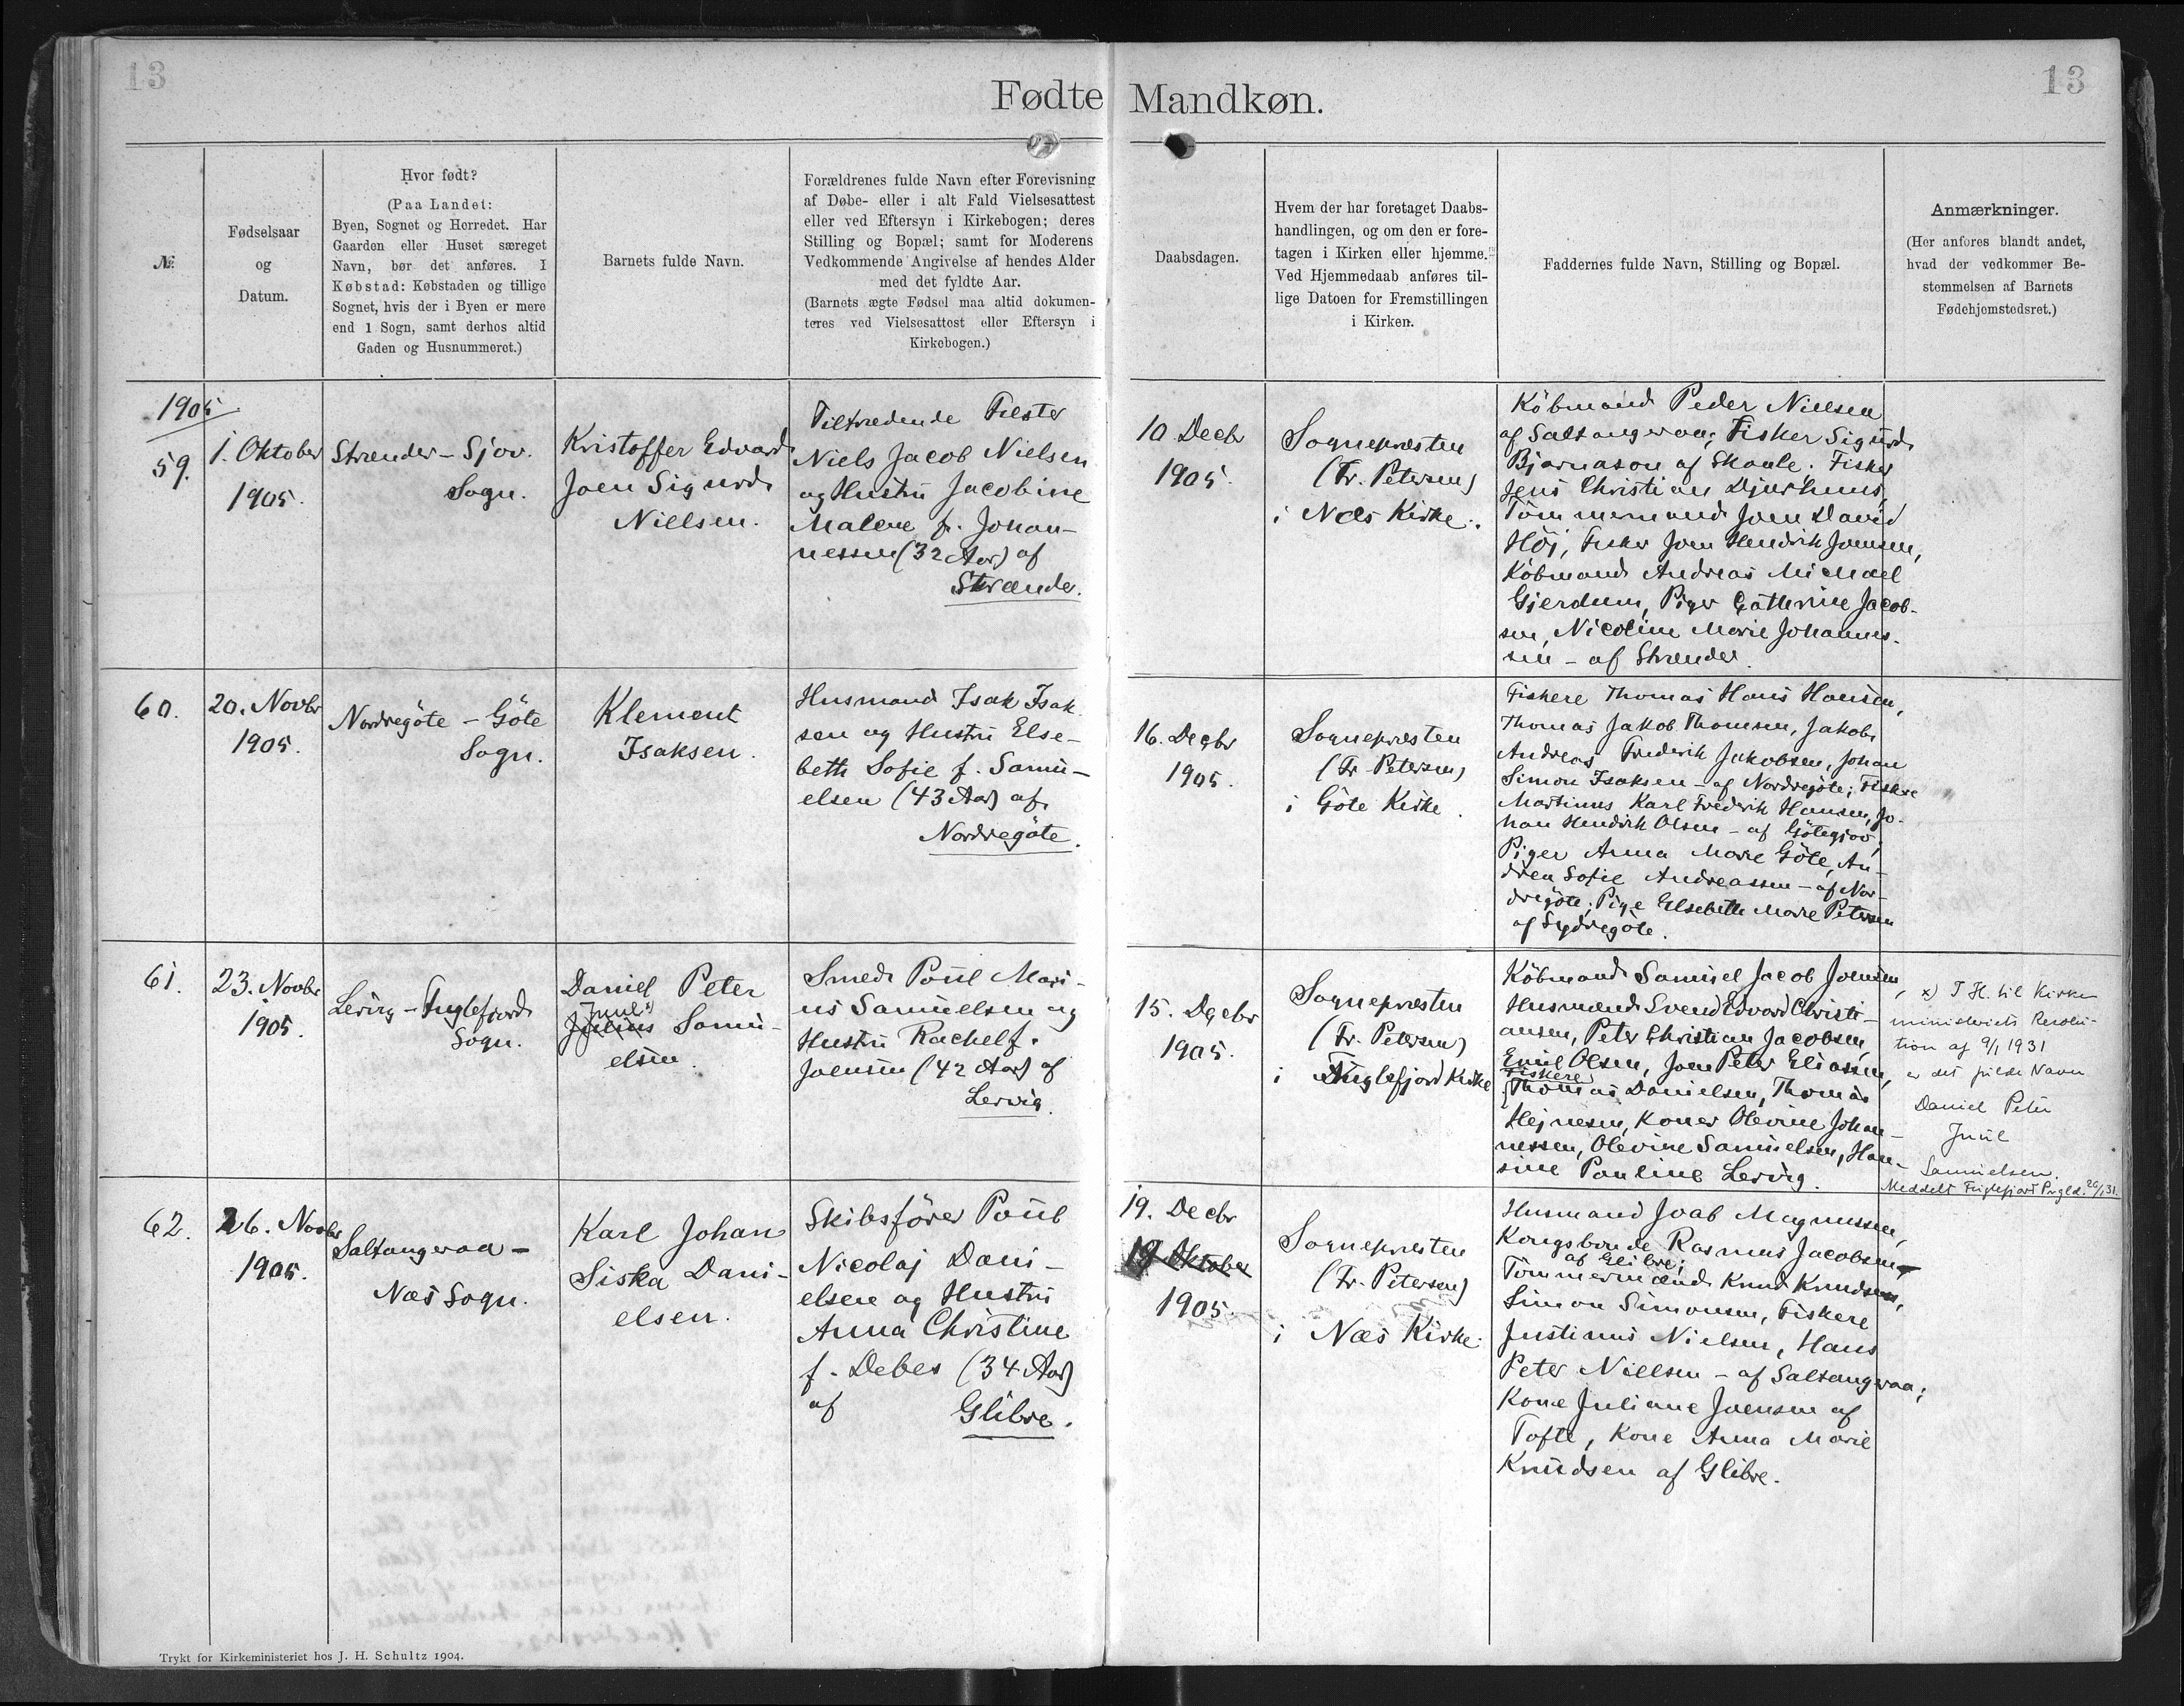 13
13
Fødte Mandkøn.
№
Fødselsaar
og
Datum.
Hvor født?
(Paa Landet:
Byen, Sognet og Herredet. Har
Gaarden eller Huset særeget
Navn, bør det anføres. I
Købstad: Købstaden og tillige
Sognet, hvis der i Byen er mere
end 1 Sogn, samt derhos altid
Gaden og Husnummeret.)
Barnets fulde Navn.
Forældrenes fulde Navn efter Forevisning
af Døbe- eller i alt Fald Vielsesattest
eller ved Eftersyn i Kirkebogen; deres
Stilling og Bopæl; samt for Moderens
Vedkommende Angivelse af hendes Alder
med det fyldte Aar.
(Barnets ægte Fødsel maa altid dokumen-
teres ved Vielsesattest eller Eftersyn i
Kirkebogen.)
Daabsdagen.
Hvem der har foretaget Daabs-
handlingen, og om den er fore-
tagen i Kirken eller hjemme.
Ved Hjemmedaab anføres til-
lige Datoen for Fremstillingen
i Kirken.
Faddernes fulde Navn, Stilling og Bopæl.
Anmærkninger.
(Her anføres blandt andet,
hvad der vedkommer Be-
stemmelsen af Barnets
Fødehjemstedsret.)
1905
59.
1. Oktober
1905.
Strender - Sjov.
Sogn.
Kristoffer Edvard
Joen Sigurd
Nielsen.
Tiltrædende Fæster
Niels Jacob Nielsen
og Hustru Jacobine
Malene f. Johan-
nessen (32 Aar) af
Strænder.
10 Decbr
1905.
Sognepræsten
(Fr. Petersen)
i Næs Kirke.
Købmand Peder Nielsen
af Saltangeraa; Fisker Sigurd
Bjarnason af Skaale. Fisker
Jens Christian Djurhuus,
Tömmermand Joen David
Höj, Fisker Joen Hendrik Joensen,
Köbmand Andreas Michael
Gjerdum, Piger Cathrine Jacob-
sen, Nicoline Marie Johannes-
sen - af Strænder.
60.
20. Novbr
1905.
Nordregöte - Göte
Sogn.
Klement
Isaksen.
Husmand Isak Isak-
sen og Hustru Else-
beth Sofie f. Samu-
elsen (43 Aar) af
Nordregöte.
16. Decbr
1905.
Sognepræsten
(Fr. Petersen)
i Göte Kirke.
Fiskere Thomas Hans Hansen,
Thomas Jakob Thomsen, Jakob
Andreas Frederik Jakobsen, Johan
Simon Isaksen - af Nordregöte; Fiskere
Martinus Karl Frederik Hansen, Jo-
han Hendrik Olsen - af Götegjov;
Piger Anna Marie Göte, An-
drea Sofie Andreassen - af Nor-
dregöte; Pige Elsebeth Marie Petersen
af Sydregöte.
61.
23. Novbr
1905.
Lervig - Fuglefjord
Sogn.
Daniel Peter
Juul x)
Julius Samu-
elsen.
Smed Poul Mari-
us Samuelsen og
Hustru Rachel f.
Joensen (42 Aar) af
Lervig.
15. Decbr
1905.
Sognepræsten
(Fr. Petersen)
i Fuglefjord Kirke
Köbmand Samuel Jacob Joensen,
Husmænd Svend Edvard Christi-
ansen, Peter Christian Jacobsen,
Emil Olsen, Joen Peter Eliasen,
Fiskere
Thomas Danielsen, Thomas
Hejnesen, Koner Olevine Johan-
nessen, Olevine Samuelsen, Han-
sine Pauline Lervig.
x) I H. til Kirke-
ministeriets Resolu-
tion af 9/1 1931
er det fulde Navn
Daniel Peter
Juul
Samuelsen.
Meddelt Fuglefjord Prgld. 26/1 31.
62.
26. Novbr
1905.
Saltangeraa -
Næs Sogn.
Karl Johan
Siska Dani-
elsen.
Skibsförer Poul
Nicolaj Dani-
elsen og Hustru
Anna Christine
f. Debes (34 Aar)
af Glibre.
19. Decbr
19 Oktober
1905.
Sognepræsten
(Fr. Petersen)
i Næs Kirke.
Husmand Joab Magnussen,
Kongsbonde Rasmus Jacobsen
af Glibre;
Tömmermænd Knud Knudsen,
Simon Simonsen, Fiskere
Justinus Nielsen, Hans
Peter Nielsen - af Saltangeraa;
Kone Juliane Joensen af
Tofte, Kone Anna Marie
Knudsen af Glibre.
Trykt for Kirkeministeriet hos J. H. Schultz 1904.